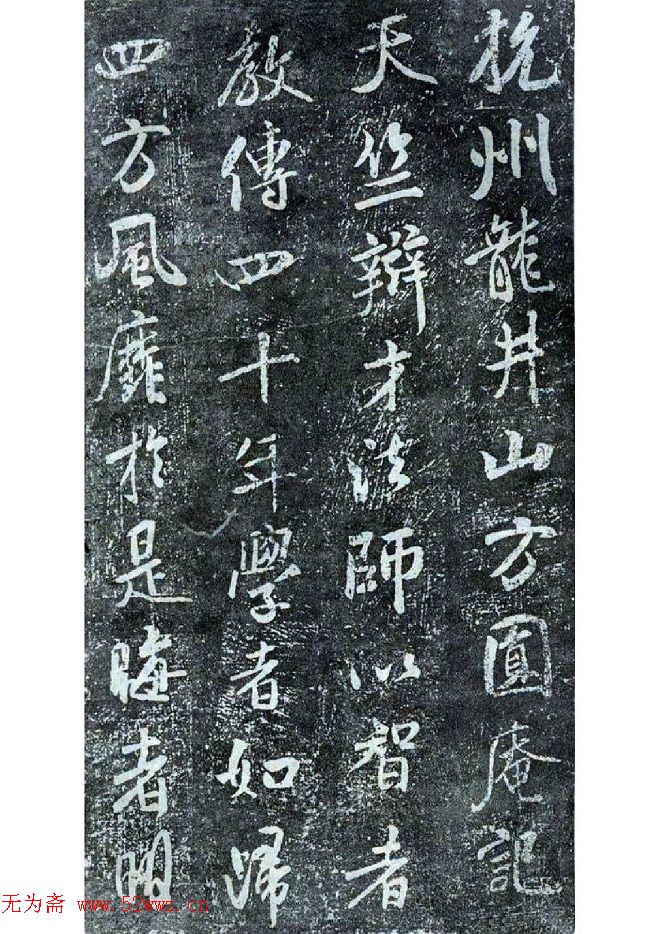 杭州龍井山方圓庵記
天竺辯才法師以智者
教傳四十年學者如歸
四方風靡於是晦者明
无为斋 www.52wwz.cn